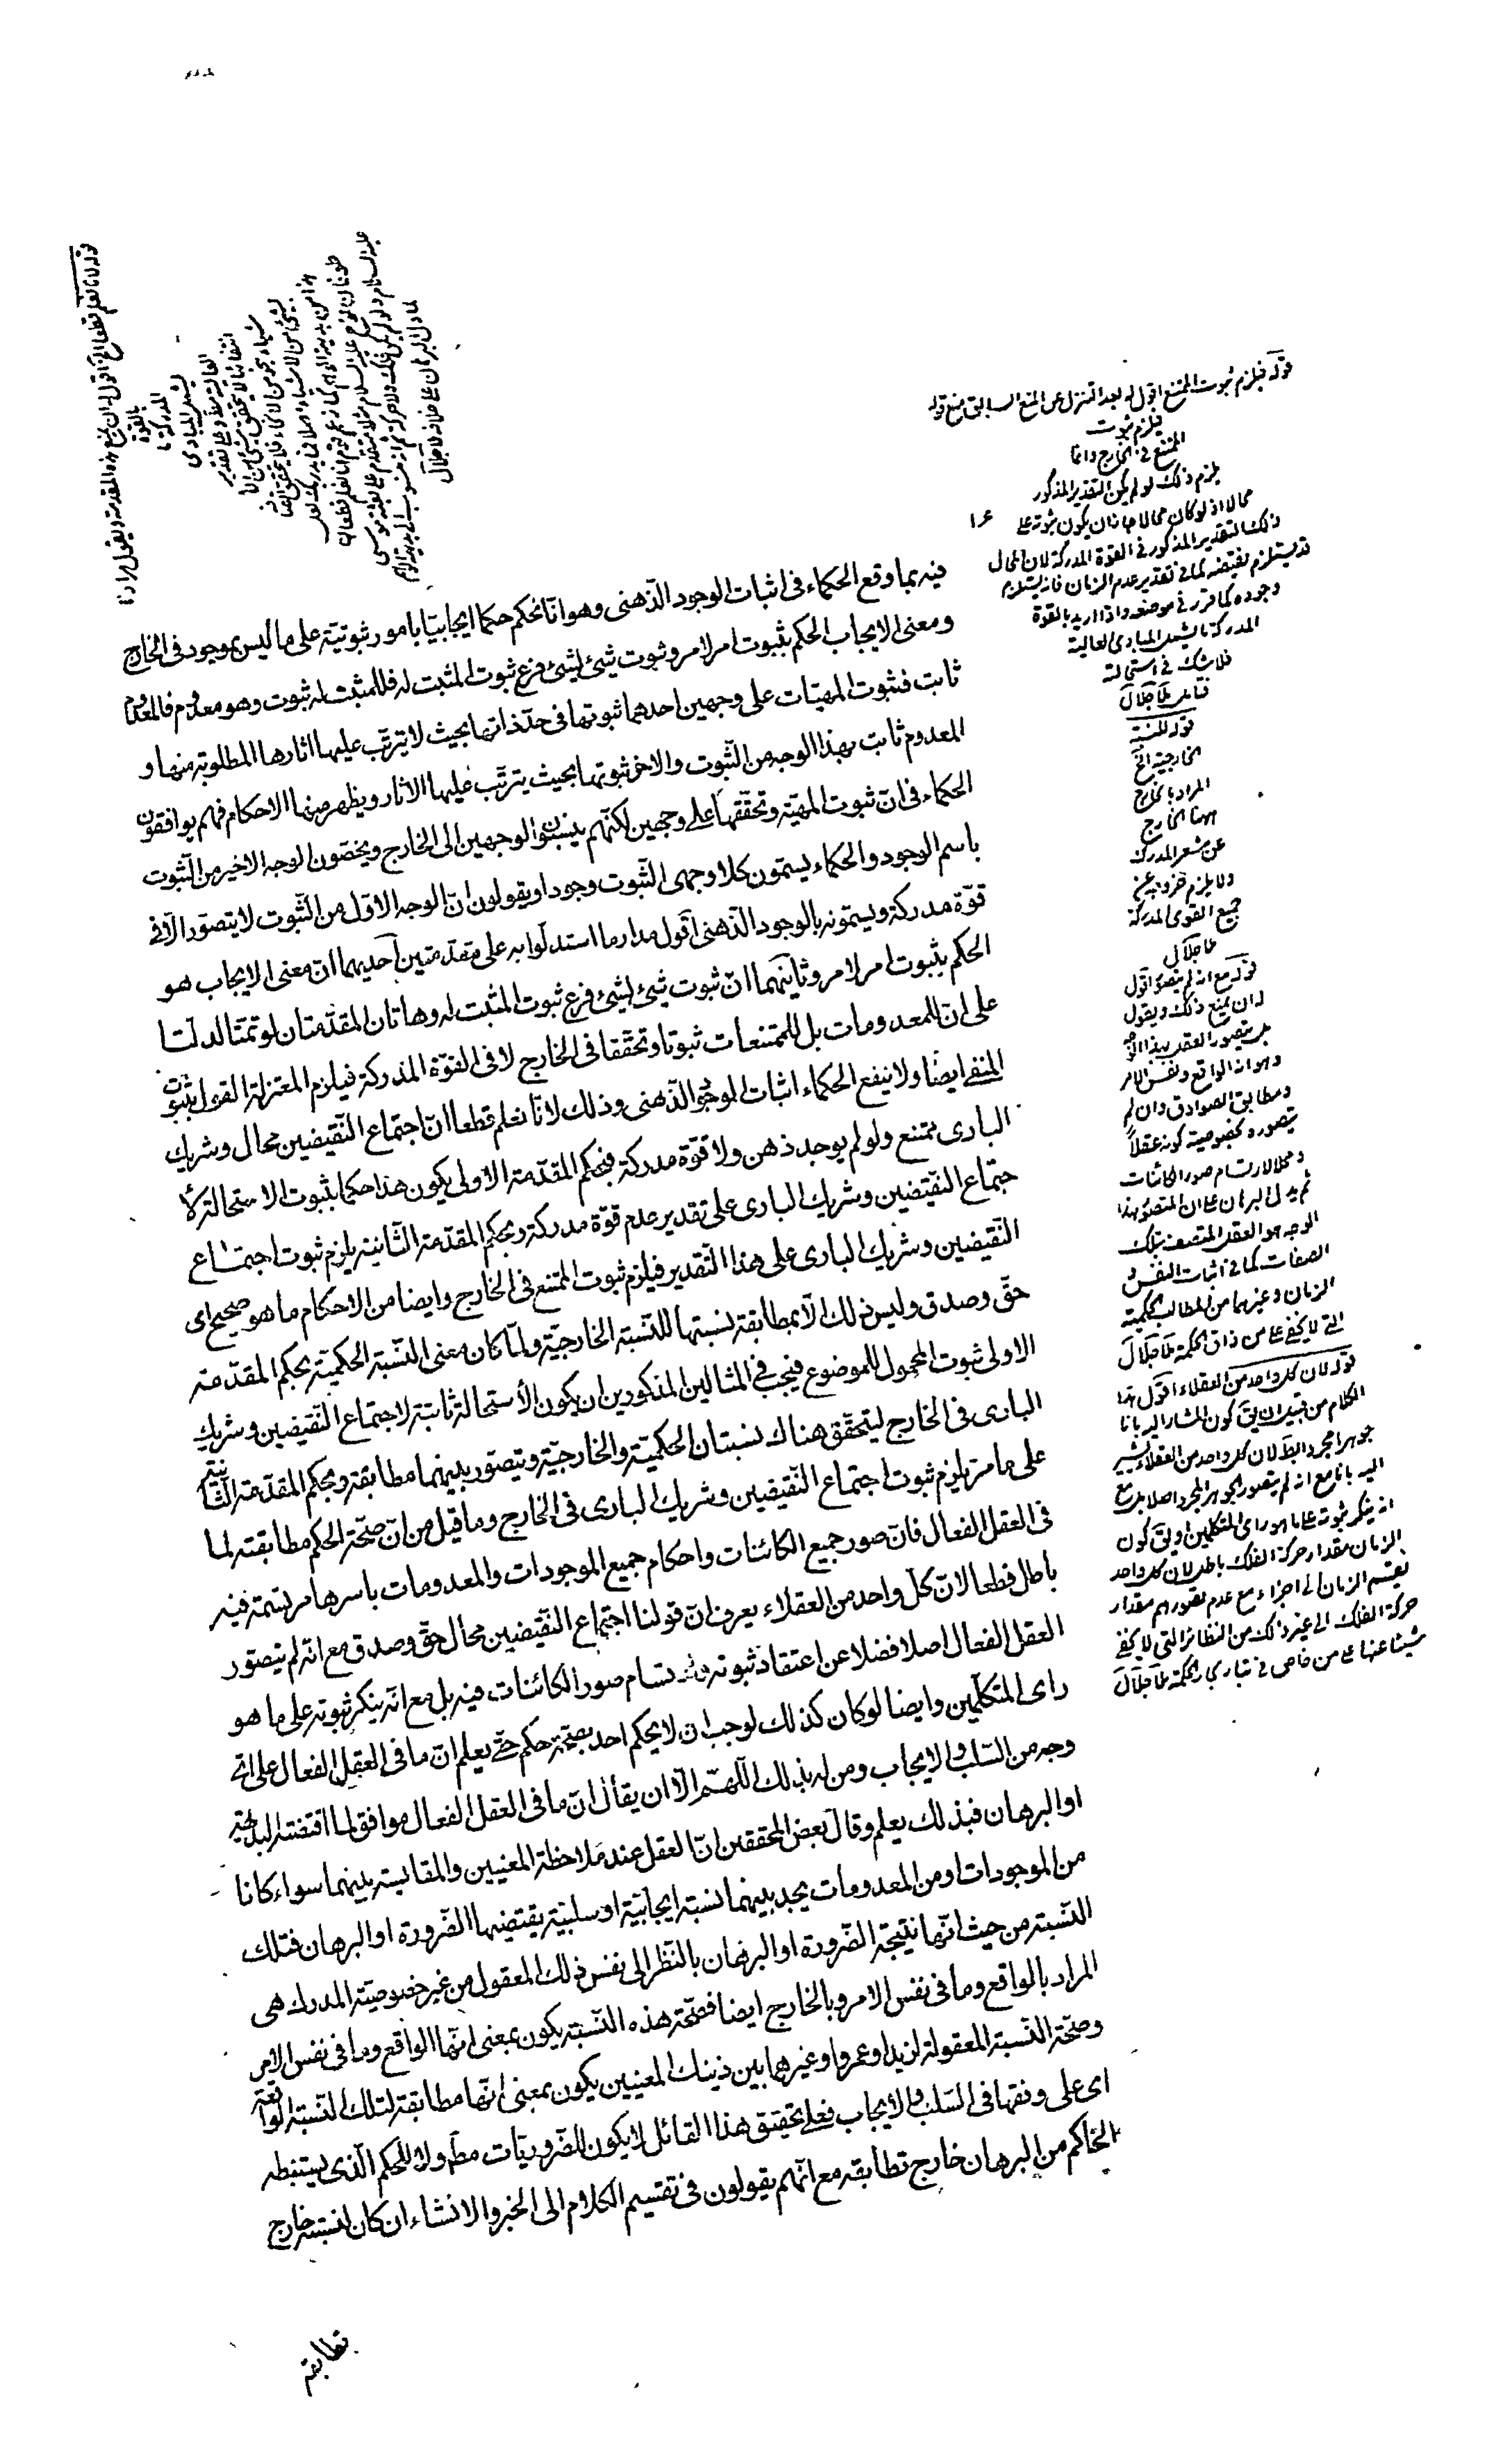 فيه بما وقع الحكماء فى اثبات الوجود الذهنى وهو انا نحكم حكما ايجابيا بامور ثبوتية على ما ليس بموجود فى الخارج
ومعنى الايجاب الحكم بثبوت امر لامر وثبوت شئ لشئ فرع ثبوت المثبت له فللمثبت له ثبوت وهو معدوم فالمعدوم
ثابت فثبوت المهيات على وجهين احدهما ثبوتها فى حد ذاتها بحيث لا يترتب عليها اثارها المطلوبة منها و
المعدوم ثابت بهذا الوجه من الثبوت والاخر ثبوتها بحيث يترتب عليها الاثار ويظهر منها الاحكام فهم يوافقون
الحكماء فى ان ثبوت المهية وتحققها على وجهين لكنهم ينسبون الوجهين الى الخارج ويخصون الوجه الاخير من الثبوت
باسم الوجود والحكماء يسمون كلا وجهى الثبوت وجودا ويقولون ان الوجه الاول من الثبوت لا يتصور الا فى
قوة مدركة ويسمونه بالوجود الذهنى اقول مدار ما استدلوا به على مقدمتين احديهما ان معنى الايجاب هو
الحكم بثبوت امر لامر وثانيتهما ان ثبوت شئ لشئ فرع ثبوت المثبت له وهاتان المقدمتان لو تمتا لدلتا
على ان للمعدومات بل للممتنعات ثبوتا وتحققا فى الخارج لا فى القوة المدركة فيلزم المعتزلة القول بثبوت
المنفى ايضا ولا ينفع الحكماء اثبات الوجود الذهنى وذلك لانا نعلم قطعا ان اجتماع النقيضين محال وشريك
البارى ممتنع ولو لم يوجد ذهن ولا قوة مدركة فبحكم المقدمة الاولى يكون هذا حكما بثبوت الاستحالة لا
جتماع النقيضين وشريك البارى على تقدير عدم قوة مدركة وبحكم المقدمة الثانية يلزم ثبوت اجتماع
النقيضين وشريك البارى على هذا التقدير فيلزم ثبوت الممتنع فى الخارج وايضا من الاحكام ما هو صحيح اى
حق وصدق وليس ذلك الا بمطابقة نسبتها للنسبة الخارجية ولما كان معنى النسبة الحكمية بحكم المقدمة
الاولى ثبوت المحمول للموضوع فيجب فى المثالين المذكورين ان يكون الاستحالة ثابتة لاجتماع النقيضين وشريك
البارى فى الخارج ليتحقق هناك نسبتان الحكمية والخارجية ويتصور بينهما مطابقة وبحكم المقدمة الثانية
على ما مر يلزم ثبوت اجتماع النقيضين وشريك البارى فى الخارج وما قيل من ان صحة الحكم مطابقته لما
فى العقل الفعال فان صور جميع الكائنات واحكام جميع الموجودات والمعدومات باسرها مرتسمة فيه
باطل قطعا لان كل واحد من العقلاء يعرف ان قولنا اجتماع النقيضين محال حق وصدق مع انه لم يتصور
العقل الفعال اصلا فضلا عن اعتقاد ثبوته وارتسام صور الكائنات فيه بل مع انه ينكر ثبوته على ما هو
راى المتكلمين وايضا لو كان كذلك لوجب ان لا يحكم احد بصحة حكم حتى يعلم ان ما فى العقل الفعال على اى
وجه من السلب والايجاب ومن له بذلك اللهم الا ان يقال ان ما فى العقل الفعال موافق لما اقتضته البديهة
او البرهان فبذلك يعلم وقال بعض المحققين ان العقل عند ملاحظة المعنيين والمقايسة بينهما سواء كانا
من الموجودات او من المعدومات يجد بينهما نسبة ايجابية او سلبية يقتضيها الضرورة او البرهان فتلك
النسبة من حيث انها نتيجة الضرورة او البرهان بالنظر الى نفس ذلك المعقول من غير خصوصية المدرك هى
المراد بالواقع وما فى نفس الامر وبالخارج ايضا فصحة هذه النسبة يكون بمعنى انها الواقع وما فى نفس الامر
وصحة النسبة المعقولة لزيد او عمرو او غيرهما بين ذينك المعنيين يكون بمعنى انها مطابقة لتلك النسبة الواقعة
اى على وفقها فى السلب والايجاب فعلى تحقيق هذا القائل لا يكون للضروريات مط ولا للحكم الذى يستنبطه
الحاكم من البرهان خارج تطابقه مع انهم يقولون فى تقسيم الكلام الى الخبر والانشاء ان كان لنسبته خارج
تطابقه
قوله فيلزم ثبوت الممتنع اقول له بعد التنزل عن المنع السابق منع قوله
فيلزم ثبوت
الممتنع فى الخارج وانما
يلزم ذلك لو لم يكن التقدير المذكور
محالا اذ لو كان محالا جاز ان يكون ثبوته على
ذلك التقدير المذكور فى القوة المدركة لان المحال
قد يستلزم نقيضه كما فى تقدير عدم الزمان فانه يستلزم
وجوده كما قرر فى موضعه واذا اريد بالقوة
المدركة ما يشمل المبادى العالية
فلا شك فى استحالته
قوله للنسبة
الخارجية الخ
المراد بالخارج
ههنا الخارج
عن مشعر المدرك
ولا يلزم خروجه عن
جميع القوى المدركة
قوله مع انه لم يتصور اقول
له ان يمنع ذلك ويقول
بل يتصور العقل بهذا الوجه
وهو انه الواقع ونفس الامر
ومطابق الصوادق وان لم
يتصوره بخصوصية كونه عقلا
ومحلا لارتسام صور الكائنات
ثم يدل البرهان على ان المتصور بهذا
الوجه هو العقل المتصف بتلك
الصفات كما فى اثبات النفس و
الزمان وغيرهما من المطالب الحكمية
التى لا يخفى على من ذاق الحكمة
قوله لان كل واحد من العقلاء اقول هذا
الكلام من قبيل ان يق كون المشار اليه بانا
جوهرا مجردا بط لان كل واحد من العقلاء يشير
اليه بانا مع انه لم يتصور الجوهر المجرد اصلا بل مع
انه ينكر ثبوته على ما هو راى المتكلمين او يق كون
الزمان مقدار حركة الفلك باطل لان كل واحد
يقسم الزمان الى اجزاء مع عدم تصورهم مقدار
حركة الفلك الى غير ذلك من النظائر التى لا يخفى
شئ منها على من خاض فى تيار بحار الحكمة
قوله لانا نعلم قطعا الخ اقول له ان يمنع هذه المقدمة ويقول مرادنا
بالقوة
المدركة ما
يشمل المبادى
العالية